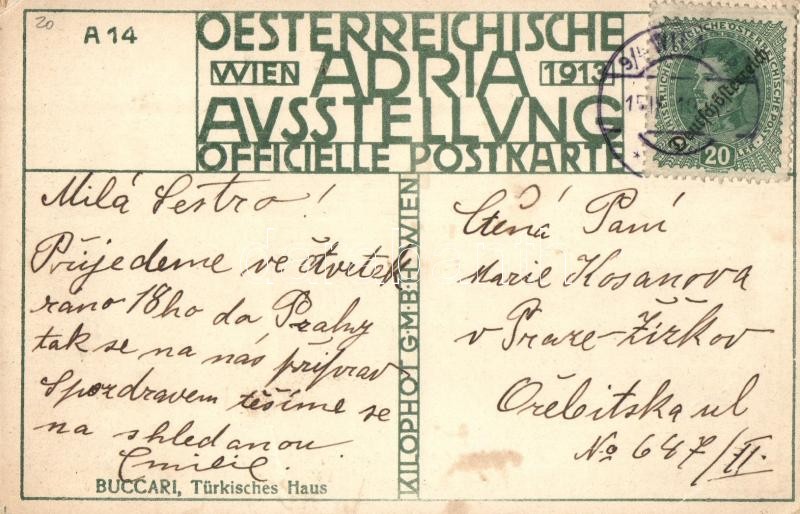 20
A 14
OESTERREICHISCHE
WIEN ADRIA 1913
AVSSTELLVNG
OFFICIELLE POSTKARTE
Deutschösterreich
20
Milá Sestro!
Přijedeme ve čtvrtek
ráno 18ho do Prahy
tak se na nás připrav
S pozdravem těšíme se
na shledanou
Emilie.
BUCCARI, Türkisches Haus
KILOPHOT G·M·B·H·WIEN
Ctěná Paní
Marie Kosanova
v Praze-Žižkov
Ořebitska ul
No 647/II.